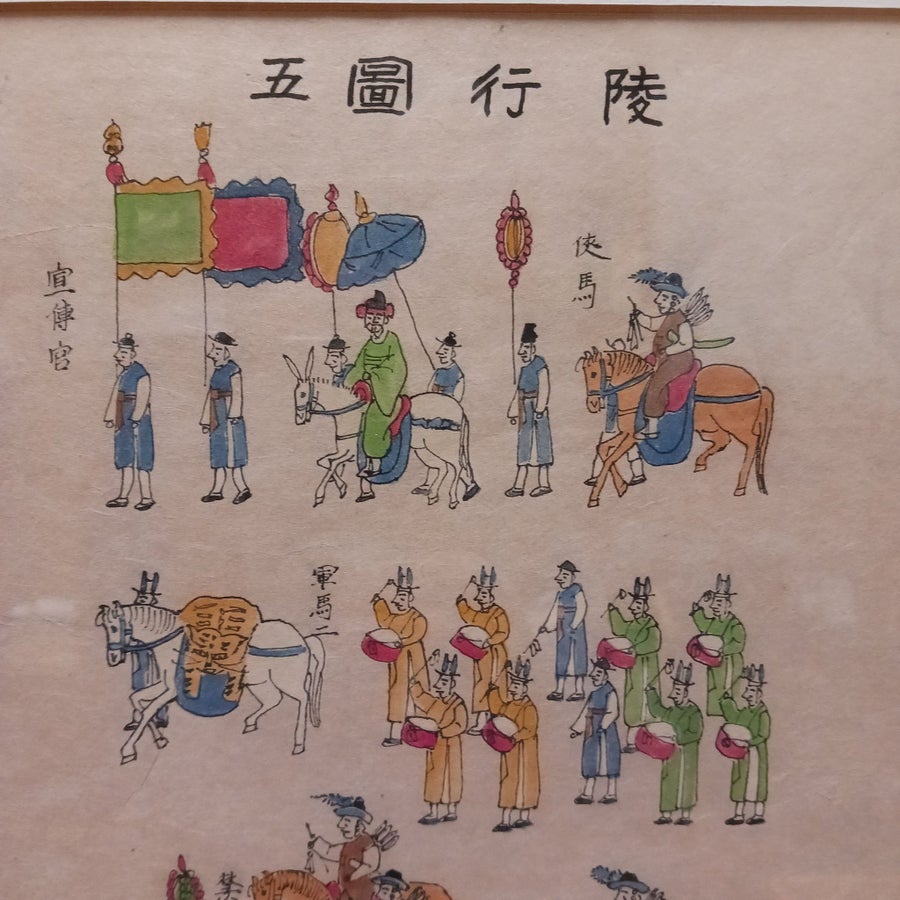 陵行圖五
俠馬
宣傳官
軍馬二